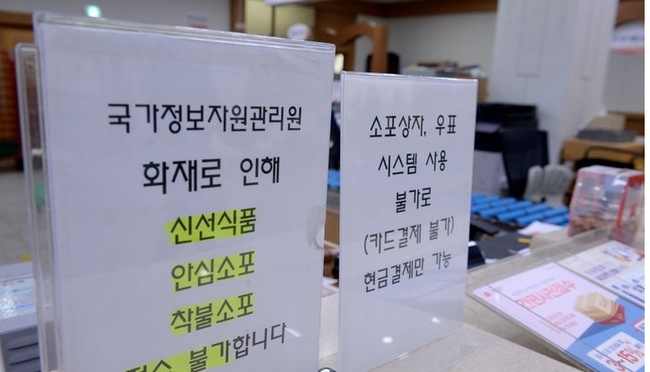 국가정보자원관리원
화재로 인해
신선식품
안심소포
착불소포
접수 불가합니다
소포상자, 우표
시스템 사용
불가로
(카드결제 불가)
현금결제만 가능
3~15%